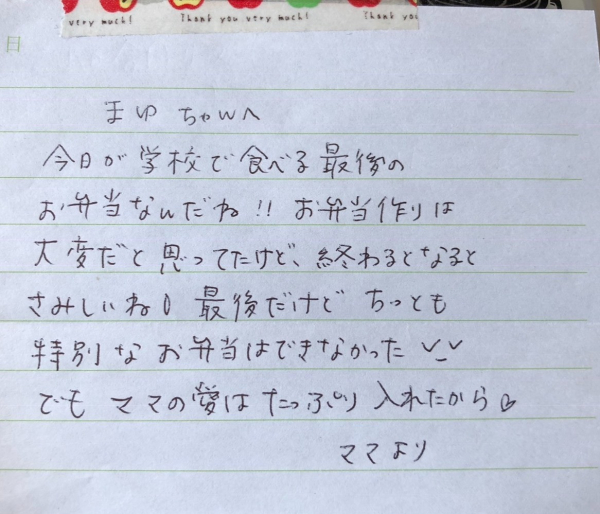 very much!
Thank you very much!
Thank you
日
まゆ ちゃんへ
今日が学校で食べる最後の
お弁当なんだね!! お弁当作りは
大変だと思ってたけど、終わるとなると
さみしいね 最後だけど ちっとも
特別な お弁当はできなかった
でも ママの愛は たっぷり 入れたから♡
ママより